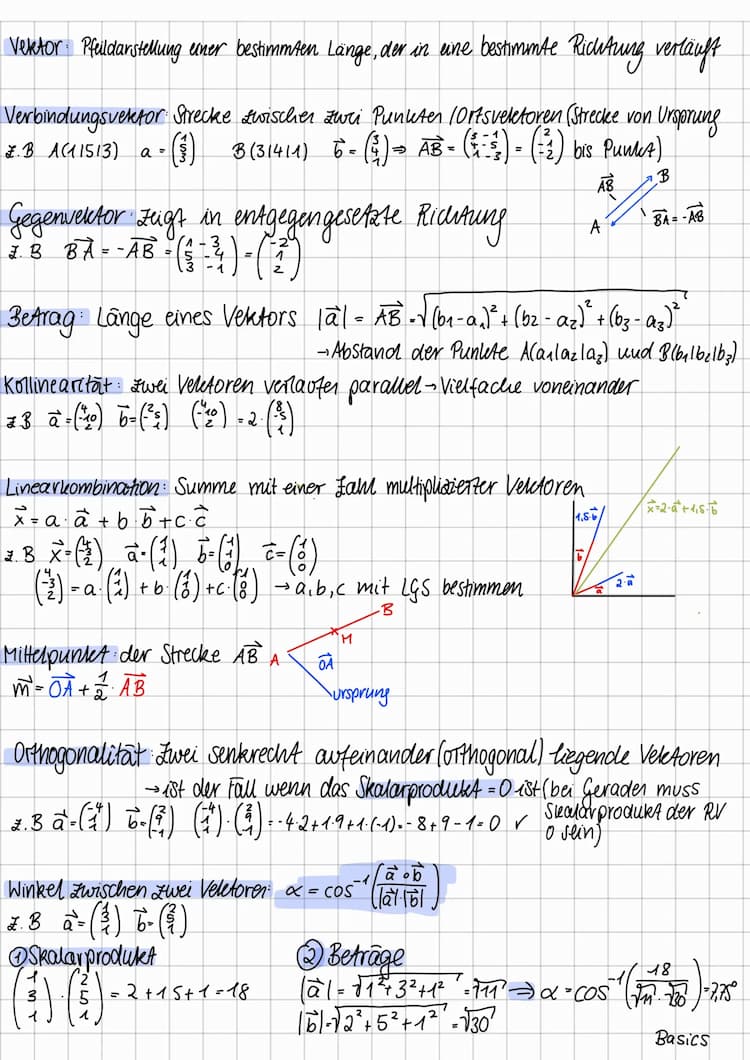 Vektor: Pfeildarstellung einer bestimmten Länge, der in eine bestimmte Richtung verläuft
Verbindungsvektor: Strecke zwischen zwei Punkten / Ortsvektoren (Strecke von Ursprung
z.B A(1|5|3) a = (1 5 3) B(3|4|1) b⃗ = (3 4 1) ⇒ AB⃗ = (3-1 4-5 1-3) = (2 -1 -2) bis Punkt)
AB⃗ B
A BA⃗ = -AB⃗
Gegenvektor: zeigt in entgegengesetzte Richtung
z.B BA⃗ = -AB⃗ = (1-3 5-4 3-1) = (-2 1 2)
Betrag: Länge eines Vektors |a⃗| = AB⃗ = √((b1-a1)² + (b2-a2)² + (b3-a3)²)
→ Abstand der Punkte A(a1|a2|a3) und B(b1|b2|b3)
Kollinearität: zwei Vektoren verlaufen parallel → Vielfache voneinander
z.B a⃗ = (4 -10 2) b⃗ = (2 -5 1) (4 -10 2) = 2 · (8 -5 1)
Linearkombination: Summe mit einer Zahl multiplizierter Vektoren
x⃗ = a · a⃗ + b · b⃗ + c · c⃗
z.B x⃗ = (4 -3 2) a⃗ = (1 1 1) b⃗ = (1 1 0) c⃗ = (1 0 0)
(4 -3 2) = a · (1 1 1) + b · (1 1 0) + c · (1 0 0) → a, b, c mit LGS bestimmen
1,5·b⃗ x⃗=2·a⃗+1,5·b⃗
b⃗
a⃗ 2·a⃗
B
M
Mittelpunkt: der Strecke AB⃗ A OA⃗
m⃗ = OA⃗ + 1/2 · AB⃗ Ursprung
Orthogonalität: Zwei senkrecht aufeinander (orthogonal) liegende Vektoren
→ ist der Fall wenn das Skalarprodukt = 0 ist (bei Geraden muss
Skalarprodukt der RV
z.B a⃗ = (-4 1 1) b⃗ = (2 9 -1) (-4 1 1) · (2 9 -1) = -4·2+1·9+1·(-1) = -8+9-1=0 ✓ 0 sein)
Winkel zwischen zwei Vektoren: α = cos⁻¹ (a⃗ ∘ b⃗ / |a⃗|·|b⃗|)
z.B a⃗ = (1 3 1) b⃗ = (2 5 1)
① Skalarprodukt ② Beträge
(1 3 1) · (2 5 1) = 2+15+1=18
|a⃗| = √(1²+3²+1²) = √11 ⇒ α = cos⁻¹ (18 / √11 · √30) = 7,75°
|b⃗| = √(2²+5²+1²) = √30
Basics